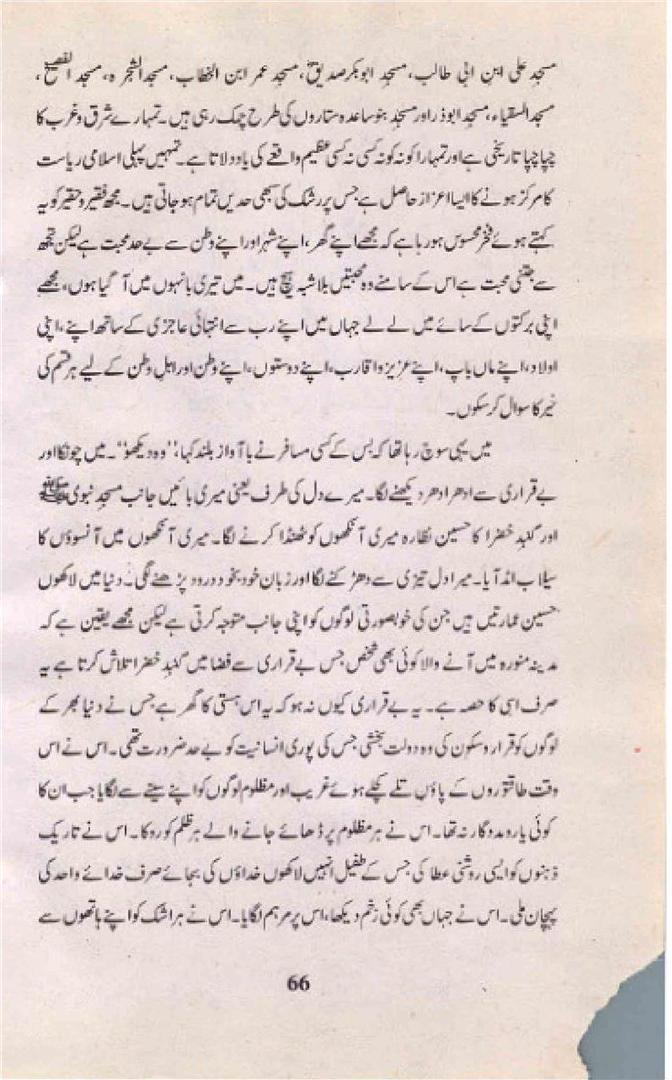 مسجد علی ابن ابی طالب، مسجد ابوبکر صدیقؓ، مسجد عمر ابن الخطاب، مسجد الشجرہ، مسجد الفصیح،
مسجد السقیاء، مسجد ابوذر اور مسجد بنو ساعدہ ستاروں کی طرح چمک رہی ہیں۔ تمہارے شرق و غرب کا
چپا چپا تاریخی ہے اور تمہارا کونہ کونہ کسی نہ کسی عظیم واقعے کی یاد دلاتا ہے۔ تمہیں پہلی اسلامی ریاست
کا مرکز ہونے کا ایسا اعزاز حاصل ہے جس پر رشک کی سبھی حدیں تمام ہو جاتی ہیں۔ مجھ فقیر و حقیر کو یہ
کہتے ہوئے فخر محسوس ہو رہا ہے کہ مجھے اپنے گھر، اپنے شہر اور اپنے وطن سے بے حد محبت ہے لیکن تجھ
سے جتنی محبت ہے اس کے سامنے وہ محبتیں بلاشبہ ہیچ ہیں۔ میں تیری بانہوں میں آ گیا ہوں، مجھے
اپنی برکتوں کے سائے میں لے لے جہاں میں اپنے رب سے انتہائی عاجزی کے ساتھ اپنے، اپنی
اولاد، اپنے ماں باپ، اپنے عزیز و اقارب، اپنے دوستوں، اپنے وطن اور اہلِ وطن کے لیے ہر قسم کی
خیر کا سوال کر سکوں۔
میں یہی سوچ رہا تھا کہ بس کے کسی مسافر نے با آواز بلند کہا، ”وہ دیکھو“۔ میں چونکا اور
بے قراری سے ادھر ادھر دیکھنے لگا۔ میرے دل کی طرف یعنی میری بائیں جانب مسجدِ نبوی ﷺ
اور گنبدِ خضرا کا حسین نظارہ میری آنکھوں کو ٹھنڈا کرنے لگا۔ میری آنکھوں میں آنسوؤں کا
سیلاب امڈ آیا۔ میرا دل تیزی سے دھڑکنے لگا اور زبان خود بخود درود پڑھنے لگی۔ دنیا میں لاکھوں
حسین عمارتیں ہیں جن کی خوبصورتی لوگوں کو اپنی جانب متوجہ کرتی ہے لیکن مجھے یقین ہے کہ
مدینہ منورہ میں آنے والا کوئی بھی شخص جس بے قراری سے فضا میں گنبدِ خضرا تلاش کرتا ہے یہ
صرف اسی کا حصہ ہے۔ یہ بے قراری کیوں نہ ہو کہ یہ اس ہستی کا گھر ہے جس نے دنیا بھر کے
لوگوں کو قرار و سکون کی وہ دولت بخشی جس کی پوری انسانیت کو بے حد ضرورت تھی۔ اس نے اس
وقت طاقتوروں کے پاؤں تلے کچلے ہوئے غریب اور مظلوم لوگوں کو اپنے سینے سے لگایا جب ان کا
کوئی یار و مددگار نہ تھا۔ اس نے ہر مظلوم پر ڈھائے جانے والے ہر ظلم کو روکا۔ اس نے تاریک
ذہنوں کو ایسی روشنی عطا کی جس کے طفیل انہیں لاکھوں خداؤں کی بجائے صرف خدائے واحد کی
پہچان ملی۔ اس نے جہاں بھی کوئی زخم دیکھا، اس پر مرہم لگایا۔ اس نے ہر اشک کو اپنے ہاتھوں سے
66